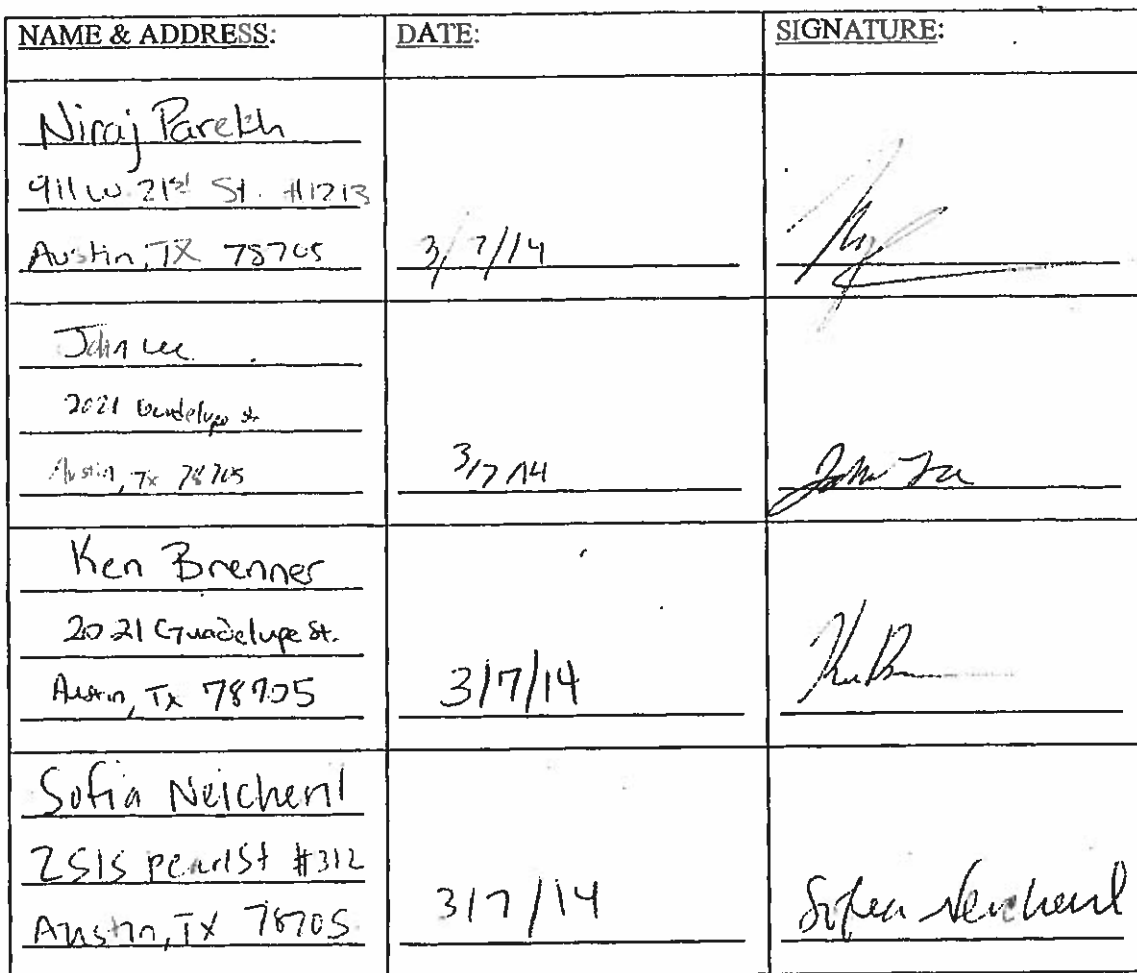 NAME & ADDRESS: DATE: SIGNATURE:
Niraj Parekh
911 W 21st St. #1213
Austin, TX 78705 3/7/14
John Lee
2021 Guadelupe St.
Austin, Tx 78705 3/7/14 John Lee
Ken Brenner
2021 Guadelupe St.
Austin, Tx 78705 3/7/14
Sofia
2515 pearl St #312
Austin, TX 78705 3/7/14